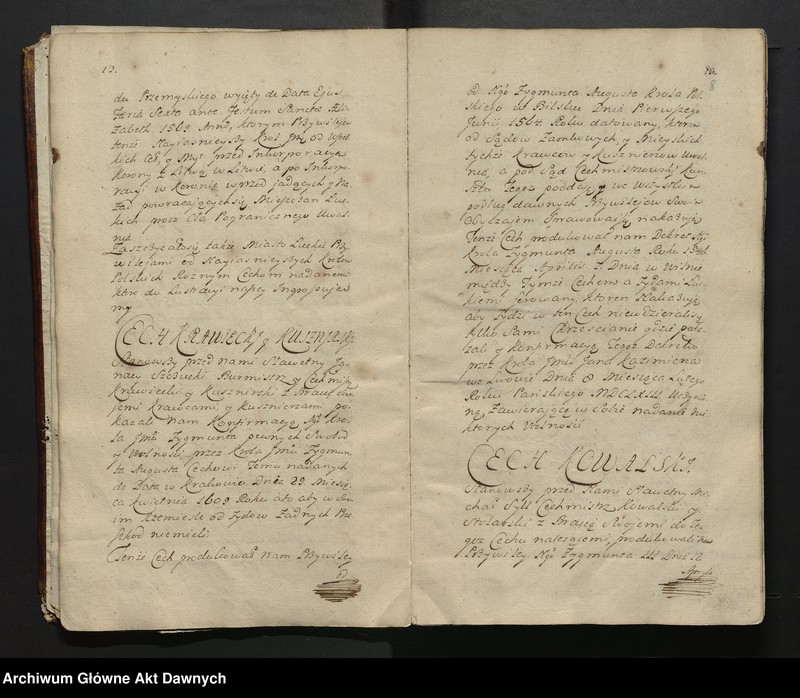 12.
du Przemyskiego wyięty de Data Ejus
Feria Sexta ante Festum Sanctæ Eli
zabeth 1569. Anni, ktorym Przywilejem
tenże Nayiasnieyszy Krol Jmć od Wszel
kich Ceł, y Myt przed Inkorporacyą
Korony z Litwą w Litwie, a po Inkorpo
racyi w Koronie wprzod jadących y Na
zad powracaiącychsię Mieszczan Łuc
kich procz Cła Pogranicznego Uwal
nia
Zaszczycałosię także Miasto Łuckie Przy
wilejami od Nayiasnieyszych Krolow
Polskich Roznym Cechom nadanemi
ktore do Lustracyi naszey Ingrossujem
my
CECH KRAWIECKI y KUSZNIERSKI
Stanowszy przed nami Sławetny Ig
nacy Burmistrz y Cechmistrz
Krawiecki y Kusznierski z Bracią Swo
jemi Krawcami, y Kusznierzami po
kazali Nam Konfirmacyą Ngo Kro
la Jmci Zygmunta pewnych Swobod
y Wolnosci przez Krola Jmci Zygmun
ta Augusta Cechowi Temu nadanych
de Data w Krakowie Dnia 29. Miesią
ca Kwietnia 1609. Roku ato aby w Swo
im Rzemiesle od Żydow Żadnych Prze
szkod niemieli
Tenże Cech produkował Nam Przywiley
od
od Ngo Zygmunta Augusta Krola Pol
skiego w Bilsku Dnia Pierwszego
Junii 1564. Roku datowany, ktory
od Sądow Zamkowych, y Mieyskich
tychże Krawcow y Kusznierzow Uwal
nia, a pod Sąd Cechmistrzowski Kun
sztu Tego poddaie y we Wszystkim
podług dawnych Przywilejow Swoim
Obyczajem Sprawowaćsię nakazuje
Tenże Cech produkował nam Dekret Ngo
Krola Zygmunta Augusta Roku
Miesiąca Aprilis z Dnia w Wilnie
między Tymże Cechem a Żydami Łuc
kiemi ferowany, ktoren Nakazuje
aby Żydzi w ten Cech niewdzierali się
tylko Sami Chrzescianie gdzie poka
zał y Konfirmacyą Tegoż Dekretu
przez Krola Jmci Jana Kazimierza
we Lwowie Dnia 8 Miesiąca Lutego
Roku Panskiego MDCLXIII Uczynio
ną, Zawieraiącą w Sobie nadania nie
ktorych Wolnosci
CECH KOWALSKI.
Stanowszy przed Nami Sławetny Mi
chał Cechmistrz Kowalski y
z Bracią Swojemi do Te
goż Cechu należącemi, produkowali Nam
Przywiley Ngo Zygmunta III Dnia 12
Aprila
Archiwum Główne Akt Dawnych